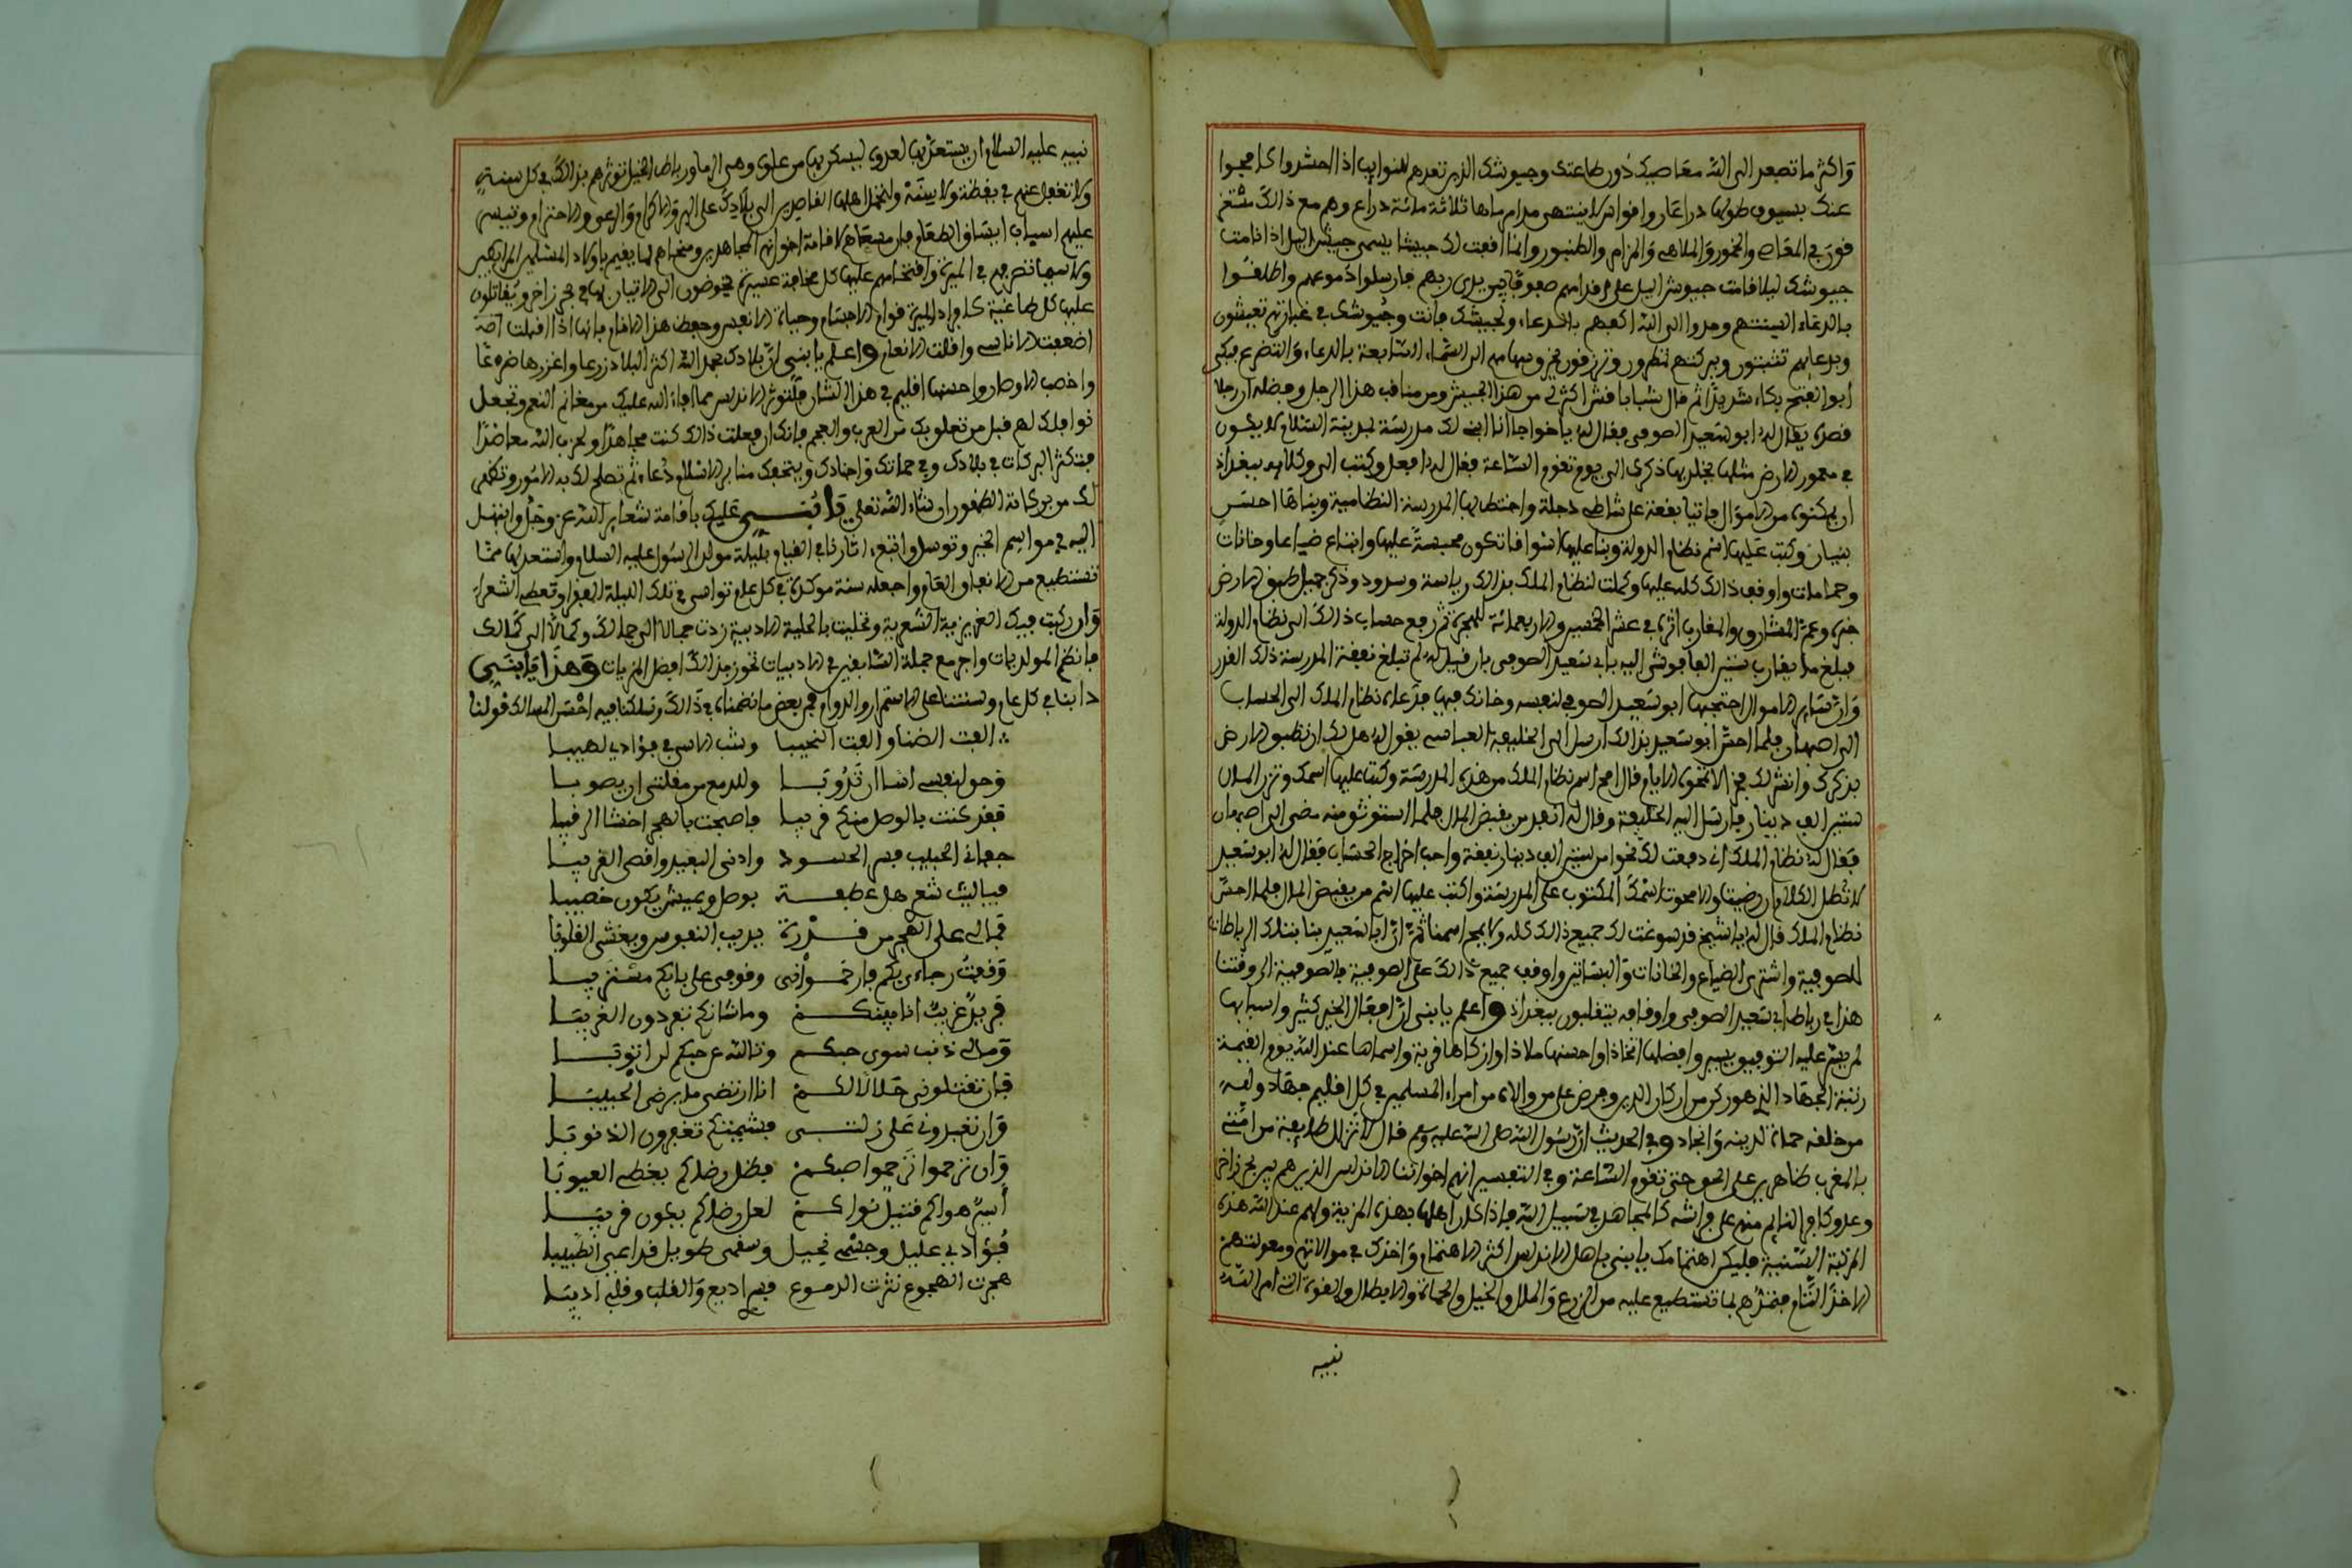 وأكثر ما تصعد إلى الله معاصيك دون طاعتك وجيوشك الذين تعدهم للنوايب إذا احتشدوا كافحوا
عنك بسيوف طولها ذراعان وأقواس لا ينتهي مدى مرماها ثلاثة مائة ذراع وهم مع ذلك مستغر
قون في المعاصي والخمور والملاهي والمزامر والطنبور وإنما أقمت لك جيشا يسمى جيش الليل إذا نامت
جيوشك ليلا قامت جيوش الليل على أقدامهم صفوفا بين يدي ربهم فأرسلوا دموعهم وأطلقوا
بالدعاء ألسنتهم ومدوا إلى الله أكفهم بالدعاء لك ولجيشك فأنت وجيوشك في خفارتهم تعيشون
وبدعائهم تثبتون وببركتهم تمطرون وترزقون تخرق سهامهم إلى السماء السابعة بالدعاء والتضرع فبكى
أبو الفتح بكاء شديدا ثم قال شاباش شاباش أكثر لي من هذا الجيش ومن مناقب هذا الرجل وفضله أن رجلا
قصده يقال له أبو سعيد الصوفي فقال له يا خواجا أنا أبني لك مدرسة بمدينة السلام لا يكون
في معمور الأرض مثلها يخلد بها ذكرك إلى يوم تقوم الساعة فقال له افعل وكتب إلى وكلايه ببغداذ
أن يمكنوه من الأموال فابتاع بقعة على شاطئ دجلة واختط بها المدرسة النظامية وبناها أحسن
بنيان وكتب عليها اسم نظام الدولة وبنا عليها أسواقا تكون محبسة عليها وابتاع ضياعا وخانات
وحمامات وأوقف ذلك كله عليها وكملت لنظام الملك بذلك رياسة وسودد وذكر جميل طبق الأرض
خبره وعم المشارق والمغارب أثره في عشر الخمسين والأربعمائة للهجرة ثم رفع حساب ذلك إلى نظام الدولة
فبلغ ما يقارب ستين ألفا فوشى إليه بأبي سعيد الصوفي بأن قيل له لم تبلغ نفقة المدرسة ذلك القدر
وأن سائر الأموال احتجبها أبو سعيد الصوفي لنفسه وخانك فيها فدعاه نظام الملك إلى الحساب
إلى أصبهان فلما أحس أبو سعيد بذلك أرسل إلى الخليفة العباسي يقول له هل لك أن نطبق الأرض
بذكرك وأنشر لك فخرا لا تمحوه الأيام قال امح اسم نظام الملك من هذه المدرسة وكتب عليها اسمك وتزن المال
ستين ألف دينار فأرسل إليه الخليفة وقال له أنفذ من يقبض المال فلما استوثق منه مضى إلى أصبهان
فقال له نظام الملك إني دفعت لك نحوا من ستين ألف دينار نفقة وأحب إخراج الحساب فقال له أبو سعيد
لا تطل الكلام إن رضيت وإلا محوت اسمك المكتوب على المدرسة وأكتب عليها اسم من يقبض المال فلما أحس
نظام الملك قال له يا شيخ قد سوغت لك جميع ذلك كله ولا تمح اسمنا ثم إن أبا سعيد بنا بتلك الرباطات
للصوفية واشترى الضياع والخانات والبساتين وأوقف جميع ذلك على الصوفية فالصوفية إلى وقتنا
هذا في رباط أبي سعيد الصوفي وأوقافه يتقلبون ببغداذ واعلم يا بني أن أفعال الخير كثيرة وأسبابها
لمن يسر عليه التوفيق يسير وأفضلها اتخاذا وأحسنها ملاذا وأزكاها قربة وأسماها عند الله يوم القيمة
رتبة الجهاد الذي هو ركن من أركان الدين وفرض على من والاه من أمراء المسلمين في كل إقليم جهاد ولله
من خلقه حماة لدينه وأنجاد وفي الحديث أن رسول الله صلى الله عليه وسلم قال لا تزال طايفة من أمتي
بالمغرب ظاهرين على الحق حتى تقوم الساعة وفي التفسير أنهم إخواننا الأندلس الذين هم بين بحر زاخر
وعدو كافر النايم منهم على فراشه كالمجاهد في سبيل الله فإذا كان أهلها بهذه المزية ولهم عند الله هذه
المرتبة السنية فليكن اهتمامك يا بني بأهل الأندلس أكثر الاهتمام وآخذك في موالاتهم ومعونتهم
الأخذ التام فتمدهم بما تستطيع عليه من الزرع والمال والخيل والحماة والأبطال والقوة التي أمر الله
نبيه
نبيه عليه السلام أن يستعد بها لعدوه ليسكن بها من علوه وهي الرما ورباط الخيل توثرهم بذلك في كل سنة
ولا تغفل عنهم في يقظة ولا سنة ولتحمل أهلها القاصدين إلى بلادك على البر والإكرام والرعي والاحترام وتيسر
عليهم أسباب ابتياع الطعام
ولا سيما تصرفهم في الميرة واقتحامهم عليها كل مخافة عسيرة يخوضون إلى الإتيان بها في بحر زاخر ويقاتلون
عليها كل طاغية كافر إذ الميرة قوام الأجسام وحياة الأنفس وحفظ هذا الأنام فإنها إذا قلت
أضعفت الأناسي وأقلت الأنعام واعلم يا بني أن بلادك بحمد الله أكثر البلاد زرعا وأغزرها ضرعا
وأخصب الأوطار وأحسنها إقليم في هذا الشأن فلتوثر الأندلس مما أفاء الله عليك من مغانم النعم وتجعل
نوافلك لهم قبل من تعلق بك من العرب والعجم فإنك إن فعلت ذلك كنت مجاهدا ولحزب الله معاضدا
فتكثر البركات في بلادك وفي حماتك وأجنادك ويتحفك منابر الإسلام دعاء ثم تصلح لك به الأمور وتظهر
لك من بركاته الظهور إن شاء الله تعلى يا بني عليك بإقامة شعاير الله عز وجل وابتهل
إليه في مواسم الخير وتوسل واتبع آثارنا في القيام بليلة مولد الرسول عليه السلام واستعد لها مما
تستطيع من الإنعام العام واجعله سنة موكدة في كل عام تواسي في تلك الليلة الفقرا وتعطي الشعراء
وإن ركبت فيك الغريزية الشعرية وتحليت بالحلية الأدبية زدت جمالا إلى جمالك وكمالا إلى كمالك
فانظم المولديات واجر مع جملة السابقين في الأدبيات تحوز بذلك أفضل المزيات وهذا يا بني
دأبنا في كل عام وسنتنا على الاستمرار والدوام فمن بعض ما نظمناه في ذلك وسلكنا فيه أحسن المسالك قولنا
ألفت الضنا وألفت النحيبا وشب الأسى في فؤادي لهيبا
وحق لنفسي أسا أن تذوبا وللدمع من مقلتي أن يصوبا
فقد كنت بالوصل منكم قريبا فأصبحت بالهجر أخشا الرقيبا
جفاني الحبيب فسر الحسود وأدنى البعيد وأقصى القريبا
فيا ليت شعر هل عطفة بوصل وعيش يكون خصيبا
فما لي على الهجر من قدرة يذيب النفوس ويغشي القلوبا
وقفت رجاي بكم فارحموا أنى وقوفي على بابكم مستريبا
فريد غريب أنا بينكم وما شأنكم تبعدون الغريبا
وما لي ذنب سوى حبكم وتالله عن حبكم لن أتوبا
فإن تقتلوني حلالا لكم أنا أرتضي ما يرضي الحبيبا
وإن تقبلوني على زلتي فشيمتكم تغفرون الذنوبا
وإن ترحموا ترحموا صبكم فظل رضاكم يغطي العيوبا
أسير هواكم قتيل نواكم لعل رضاكم يكون قريبا
فؤادي عليل وجسمي نحيل وسقمي طويل قد أعيى الطبيبا
هجرت الهجوع نثرت الدموع فسري أذيع والقلب وقلبي أذيبا